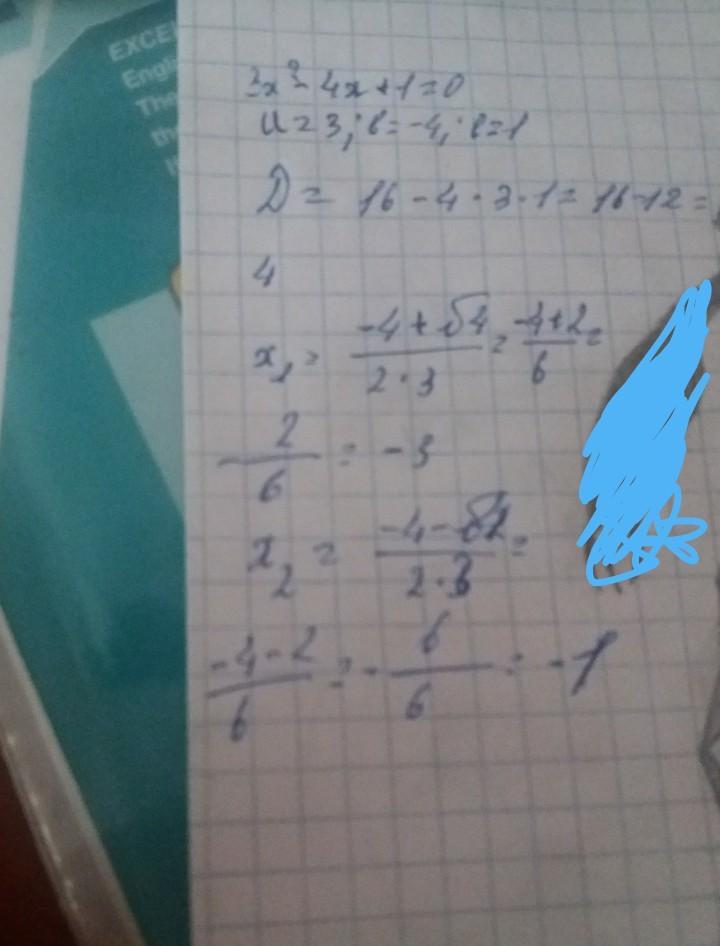 EXCEL
Engli
The
th
3x²-4x+1=0
a=3; b=-4; c=1
D = 16-4·3·1=16-12=
4
x₁ = (-4+√4)/(2·3) = (-4+2)/6 =
-2/6 = -3
x₂ = (-4-√4)/(2·3) =
(-4-2)/6 = -6/6 = -1